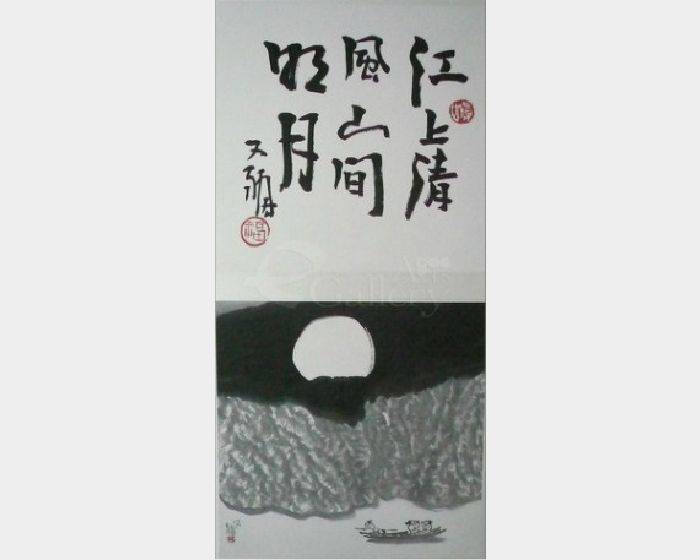 江上清
風山間
明月
e Gallery